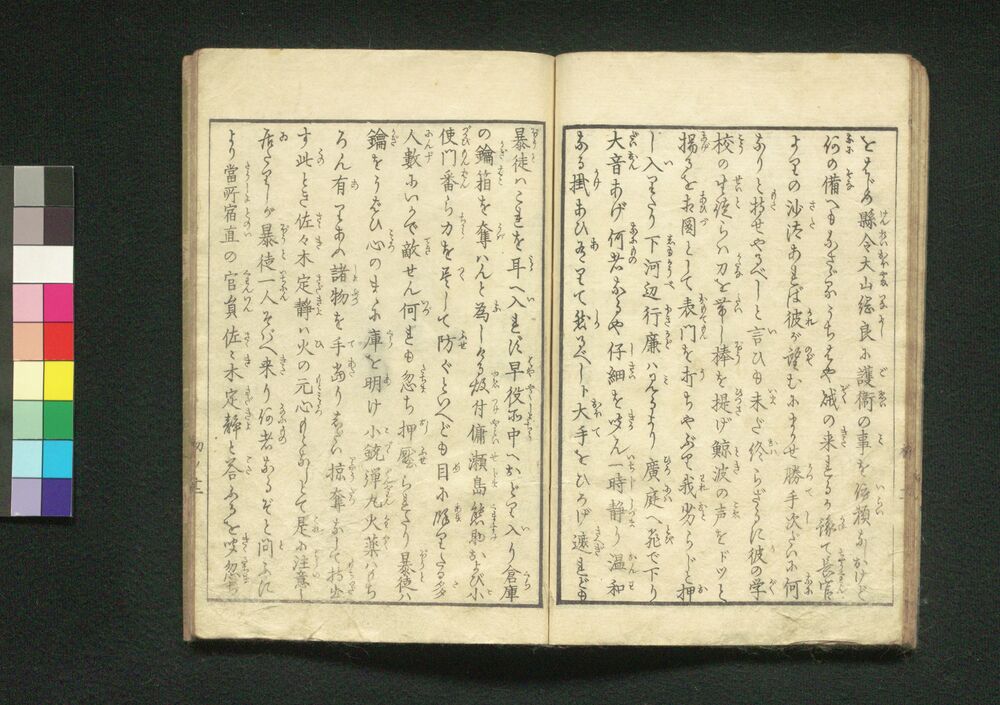 をはじめ縣令大山綱良に護衛の事を依頼なしかけど
何の備へもなさざるうちはや賊の来るゝ
よりの沙汰あれば彼が望むにまかせ勝手次だいに何
なりと持せやるべしと言ひも未だ終らざるに彼の学
校の生徒らハ刀を帯し棒を提げ鯨波の声をドッと
揚るを相図として表門を打ちやぶり我劣らじと押
し入りたり下河辺行廉ハ見るより廣庭へ飛で下り
大音あげ何者なるや仔細を吱ん一時静り温和
なる掛あひ然るべしト大手をひろげ遮れども
暴徒ハこれを耳へ入れず早役所中へおどり入り倉庫
の鑰箱を奪ハんと為しける故付傭瀬島熊助および小
使門番ら力を尽して防ぐといへども目に余りたる多
人數にいかで敵せん何れも忽ち押壓られたり暴徒ハ
鑰をうばひ心のまゝに庫を明け小銃弾丸火薬ハもち
ろん有りあふ諸物を手當り
す此とき佐々木定静ハ火の元心もとなしとて是に注意し
居たりしが暴徒一人そばへ来り何者なるぞと問ふに
より當所宿直の官員佐々木定静と答ふるを吱忽ち